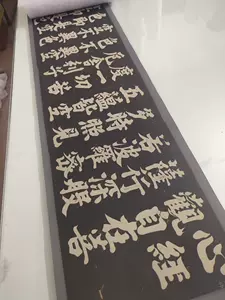 心經
觀自在菩
薩行深般
若波羅蜜
多時照見
五蘊皆空
度一切苦
厄舍利子
色不異空
空不異色
色即是空